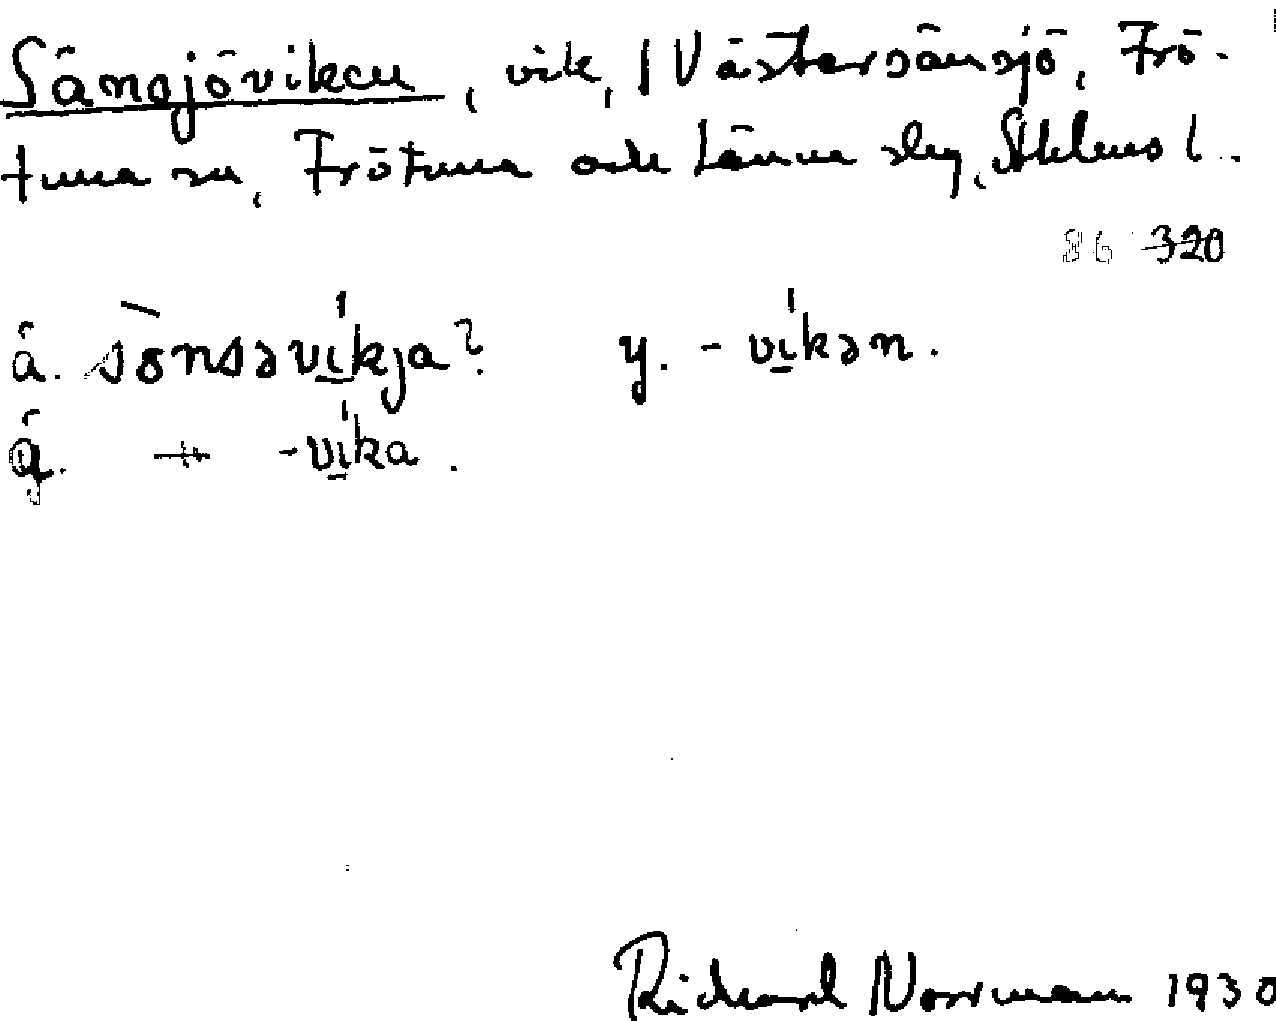 Sånsjöviken, vik, Västersånsjö, Frö-
tuna sn, Frötuna och Länna slg, Sthlms l.
86 320
å. sònsəvíkja? y. -víkən.
-víka.
Richard Norrman 1930